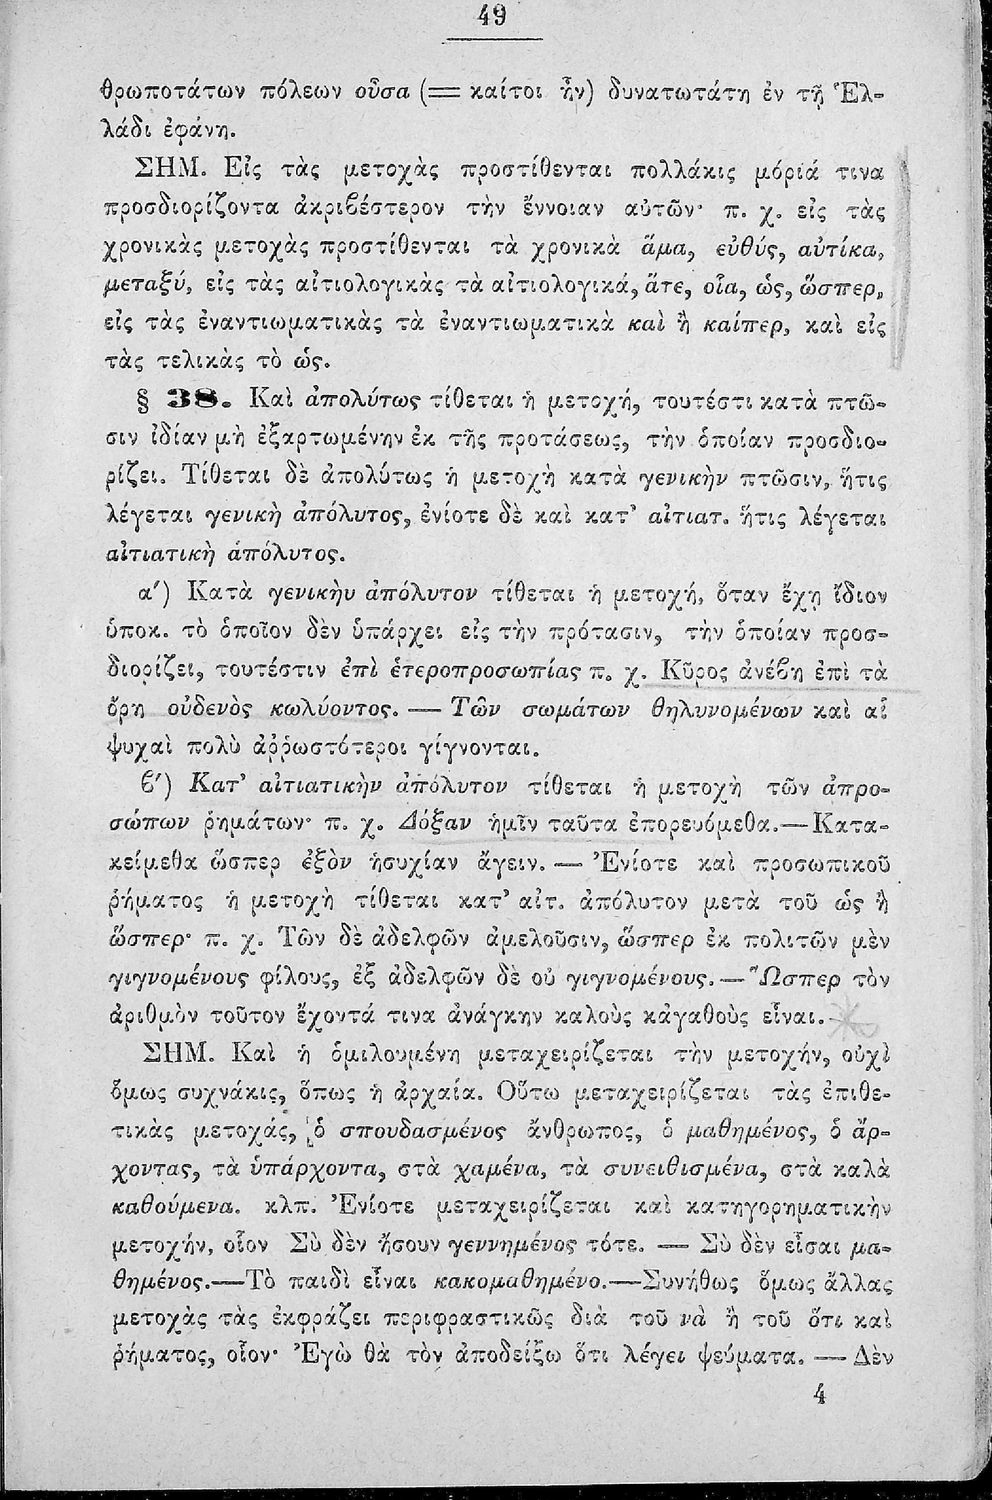 49
θρωποτάτων πόλεων οὖσα (= καίτοι ἦν) δυνατωτάτη ἐν τῇ Ἑλ-
λάδι ἐφάνη.
ΣΗΜ. Εἰς τὰς μετοχὰς προστίθενται πολλάκις μόριά τινα
προσδιορίζοντα ἀκριβέστερον τὴν ἔννοιαν αὐτῶν· π. χ. εἰς τὰς
χρονικὰς μετοχὰς προστίθενται τὰ χρονικὰ ἅμα, εὐθύς, αὐτίκα,
μεταξύ, εἰς τὰς αἰτιολογικὰς τὰ αἰτιολογικά, ἅτε, οἷα, ὡς, ὥσπερ,
εἰς τὰς ἐναντιωματικὰς τὰ ἐναντιωματικὰ καὶ ἢ καίπερ, καὶ εἰς
τὰς τελικὰς τὸ ὡς.
§ 38. Καὶ ἀπολύτως τίθεται ἡ μετοχή, τουτέστι κατὰ πτῶ-
σιν ἰδίαν μὴ ἐξαρτωμένην ἐκ τῆς προτάσεως, τὴν ὁποίαν προσδιο-
ρίζει. Τίθεται δὲ ἀπολύτως ἡ μετοχὴ κατὰ γενικὴν πτῶσιν, ἥτις
λέγεται γενικὴ ἀπόλυτος, ἐνίοτε δὲ καὶ κατ' αἰτιατ. ἥτις λέγεται
αἰτιατικὴ ἀπόλυτος.
α') Κατὰ γενικὴν ἀπόλυτον τίθεται ἡ μετοχή, ὅταν ἔχῃ ἴδιον
ὑποκ. τὸ ὁποῖον δὲν ὑπάρχει εἰς τὴν πρότασιν, τὴν ὁποίαν προσ-
διορίζει, τουτέστιν ἐπὶ ἑτεροπροσωπίας π. χ. Κῦρος ἀνέβη ἐπὶ τὰ
ὄρη οὐδενὸς κωλύοντος. — Τῶν σωμάτων θηλυνομένων καὶ αἱ
ψυχαὶ πολὺ ἀῤῥωστότεροι γίγνονται.
β') Κατ' αἰτιατικὴν ἀπόλυτον τίθεται ἡ μετοχὴ τῶν ἀπρο-
σώπων ῥημάτων· π. χ. Δόξαν ἡμῖν ταῦτα ἐπορευόμεθα.—Κατα-
κείμεθα ὥσπερ ἐξὸν ἡσυχίαν ἄγειν. — Ἐνίοτε καὶ προσωπικοῦ
ῥήματος ἡ μετοχὴ τίθεται κατ' αἰτ. ἀπόλυτον μετὰ τοῦ ὡς ἢ
ὥσπερ· π. χ. Τῶν δὲ ἀδελφῶν ἀμελοῦσιν, ὥσπερ ἐκ πολιτῶν μὲν
γιγνομένους φίλους, ἐξ ἀδελφῶν δὲ οὐ γιγνομένους. — Ὥσπερ τὸν
ἀριθμὸν τοῦτον ἔχοντά τινα ἀνάγκην καλοὺς κἀγαθοὺς εἶναι.
ΣΗΜ. Καὶ ἡ ὁμιλουμένη μεταχειρίζεται τὴν μετοχήν, οὐχὶ
ὅμως συχνάκις, ὅπως ἡ ἀρχαία. Οὕτω μεταχειρίζεται τὰς ἐπιθε-
τικὰς μετοχάς, ὁ σπουδασμένος ἄνθρωπος, ὁ μαθημένος, ὁ ἄρ-
χοντας, τὰ ὑπάρχοντα, στὰ χαμένα, τὰ συνειθισμένα, στὰ καλὰ
καθούμενα. κλπ. Ἐνίοτε μεταχειρίζεται καὶ κατηγορηματικὴν
μετοχήν, οἷον Σὺ δὲν ἤσουν γεννημένος τότε. — Σὺ δὲν εἶσαι μα-
θημένος.—Τὸ παιδὶ εἶναι κακομαθημένο.—Συνήθως ὅμως ἄλλας
μετοχὰς τὰς ἐκφράζει περιφραστικῶς διὰ τοῦ νὰ ἢ τοῦ ὅτι καὶ
ῥήματος, οἷον· Ἐγὼ θὰ τὸν ἀποδείξω ὅτι λέγει ψεύματα. — Δὲν
4